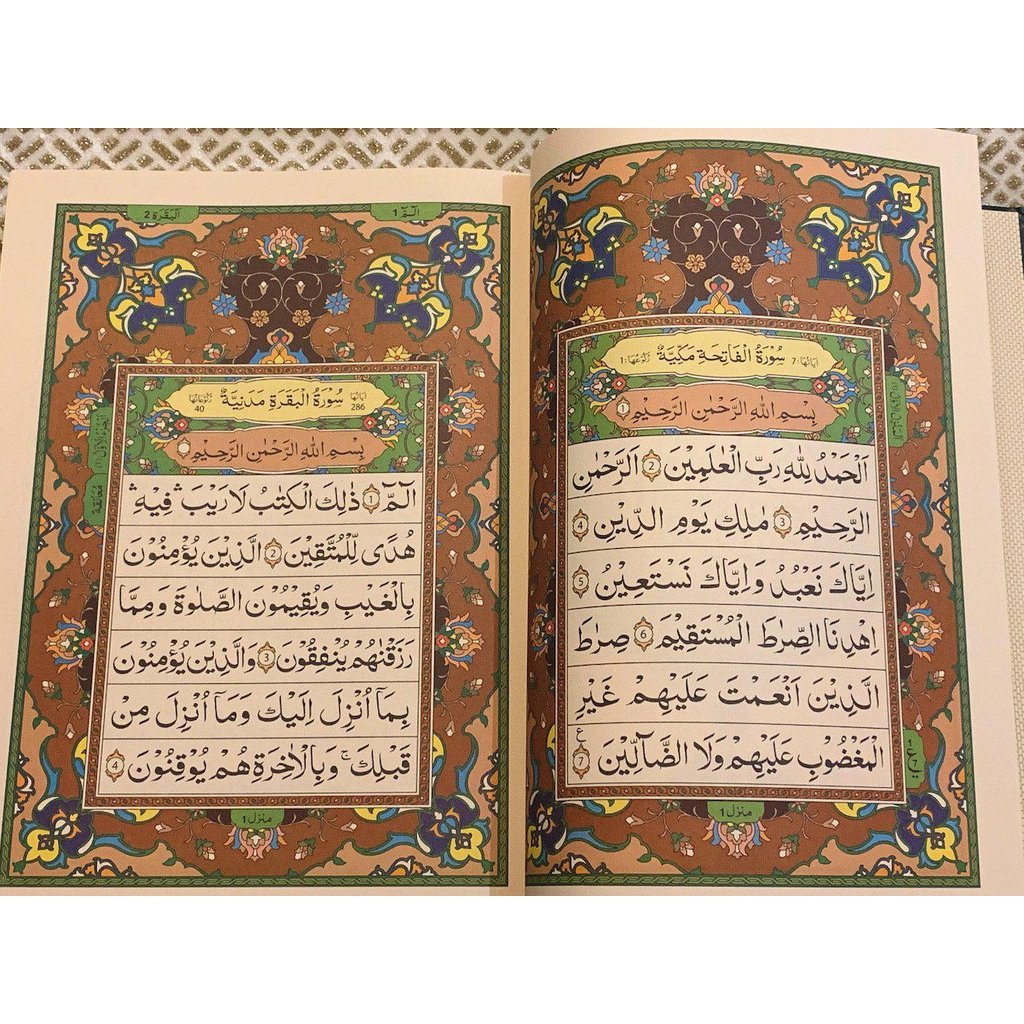 اٰيَاتُهَا: 7 سُوْرَةُ الْفَاتِحَةِ مَكِّيَّةٌ رُكُوْعُهَا: 1
بِسْمِ اللهِ الرَّحْمٰنِ الرَّحِيْمِ 1
اَلْحَمْدُ لِلّٰهِ رَبِّ الْعٰلَمِيْنَ 2 الرَّحْمٰنِ
الرَّحِيْمِ 3 مٰلِكِ يَوْمِ الدِّيْنِ 4
اِيَّاكَ نَعْبُدُ وَاِيَّاكَ نَسْتَعِيْنُ 5
اِهْدِنَا الصِّرَاطَ الْمُسْتَقِيْمَ 6 صِرَاطَ
الَّذِيْنَ اَنْعَمْتَ عَلَيْهِمْ غَيْرِ
الْمَغْضُوْبِ عَلَيْهِمْ وَلَا الضَّآلِّيْنَ ع 7
منزل 1
الٓمّٓ 1
اَلْبَقَرَة 2
اٰيَاتُهَا 286 سُوْرَةُ الْبَقَرَةِ مَدَنِيَّةٌ رُكُوْعَاتُهَا 40
بِسْمِ اللهِ الرَّحْمٰنِ الرَّحِيْمِ
الٓمّٓ 1 ذٰلِكَ الْكِتٰبُ لَا رَيْبَ ۛ فِيْهِ ۛ
هُدًى لِّلْمُتَّقِيْنَ 2 الَّذِيْنَ يُؤْمِنُوْنَ
بِالْغَيْبِ وَيُقِيْمُوْنَ الصَّلٰوةَ وَمِمَّا
رَزَقْنٰهُمْ يُنْفِقُوْنَ 3 وَالَّذِيْنَ يُؤْمِنُوْنَ
بِمَآ اُنْزِلَ اِلَيْكَ وَمَآ اُنْزِلَ مِنْ
قَبْلِكَ ۚ وَبِالْاٰخِرَةِ هُمْ يُوْقِنُوْنَ 4
معانقة
منزل 1